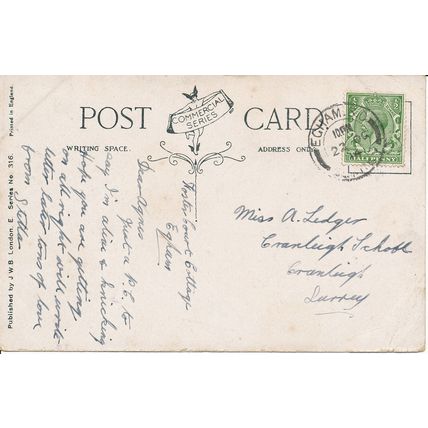 POST CARD
COMMERCIAL
SERIES
WRITING SPACE.
ADDRESS ONLY
EGHAM
HALFPENNY
Foster Court Cottage
Egham
Dear Agnes
Just a P.C. to
say I'm alive & kicking
Hope you are getting
on all right will write
letter later tons of love
from Stella
Miss A. Ledger
Cranleigh School
Cranleigh
Surrey
Published by J W B London, E. Series No 316. Printed in England.